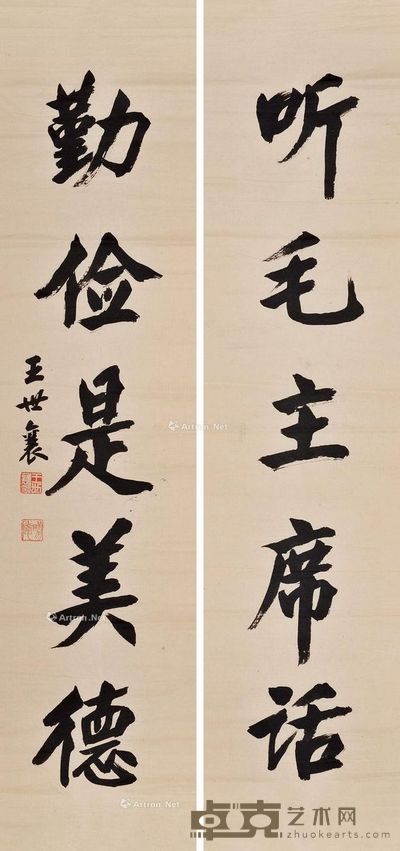 听毛主席话
勤俭是美德
王世襄
Artron.Net
Artron.Net
Artron.Net
卓克艺术网
zhuokearts.com